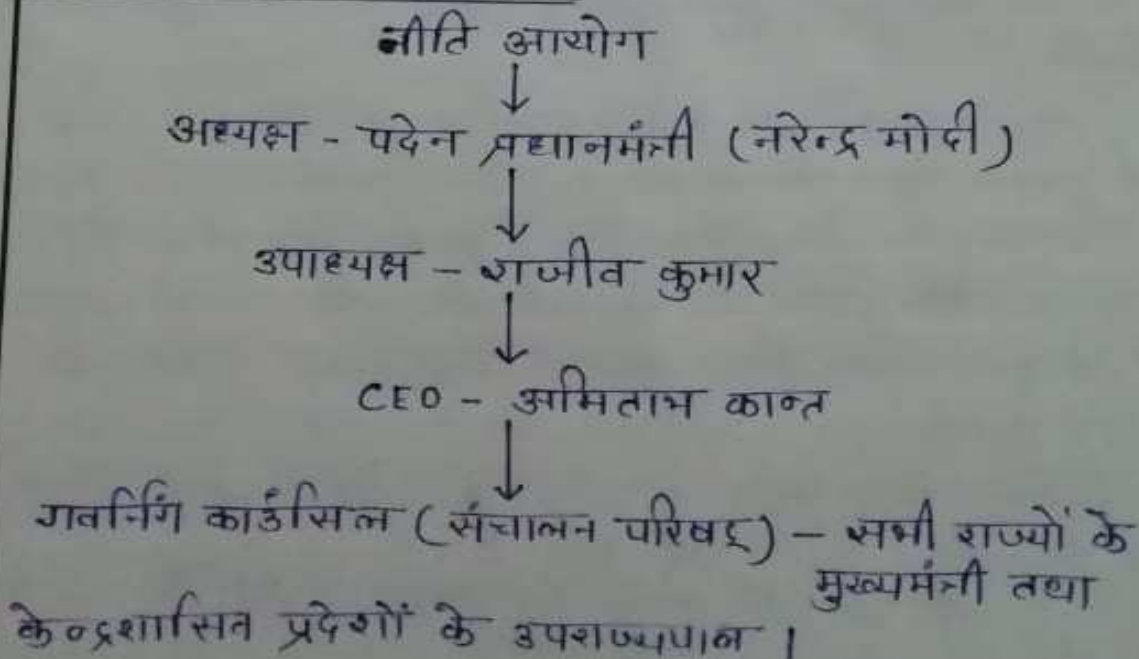 नीति आयोग
↓
अध्यक्ष - पदेन प्रधानमंत्री (नरेन्द्र मोदी)
↓
उपाध्यक्ष - राजीव कुमार
↓
CEO - अमिताभ कान्त
↓
गवर्निंग काउंसिल (संचालन परिषद्) - सभी राज्यों के
मुख्यमंत्री तथा
केन्द्रशासित प्रदेशों के उपराज्यपाल।